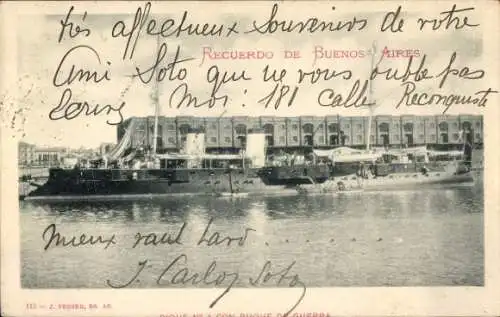 très affectueux Souvenirs de votre
RECUERDO DE BUENOS AIRES
Ami Soto que ne vous oublie pas
Ecrivez Moi: 181 Calle Reconquista
Mieux vaut tard . . . . . . .
J. Carlos Soto
J. PEUSER, BS. AS.
DIQUE Nº 4 CON BUQUE DE GUERRA